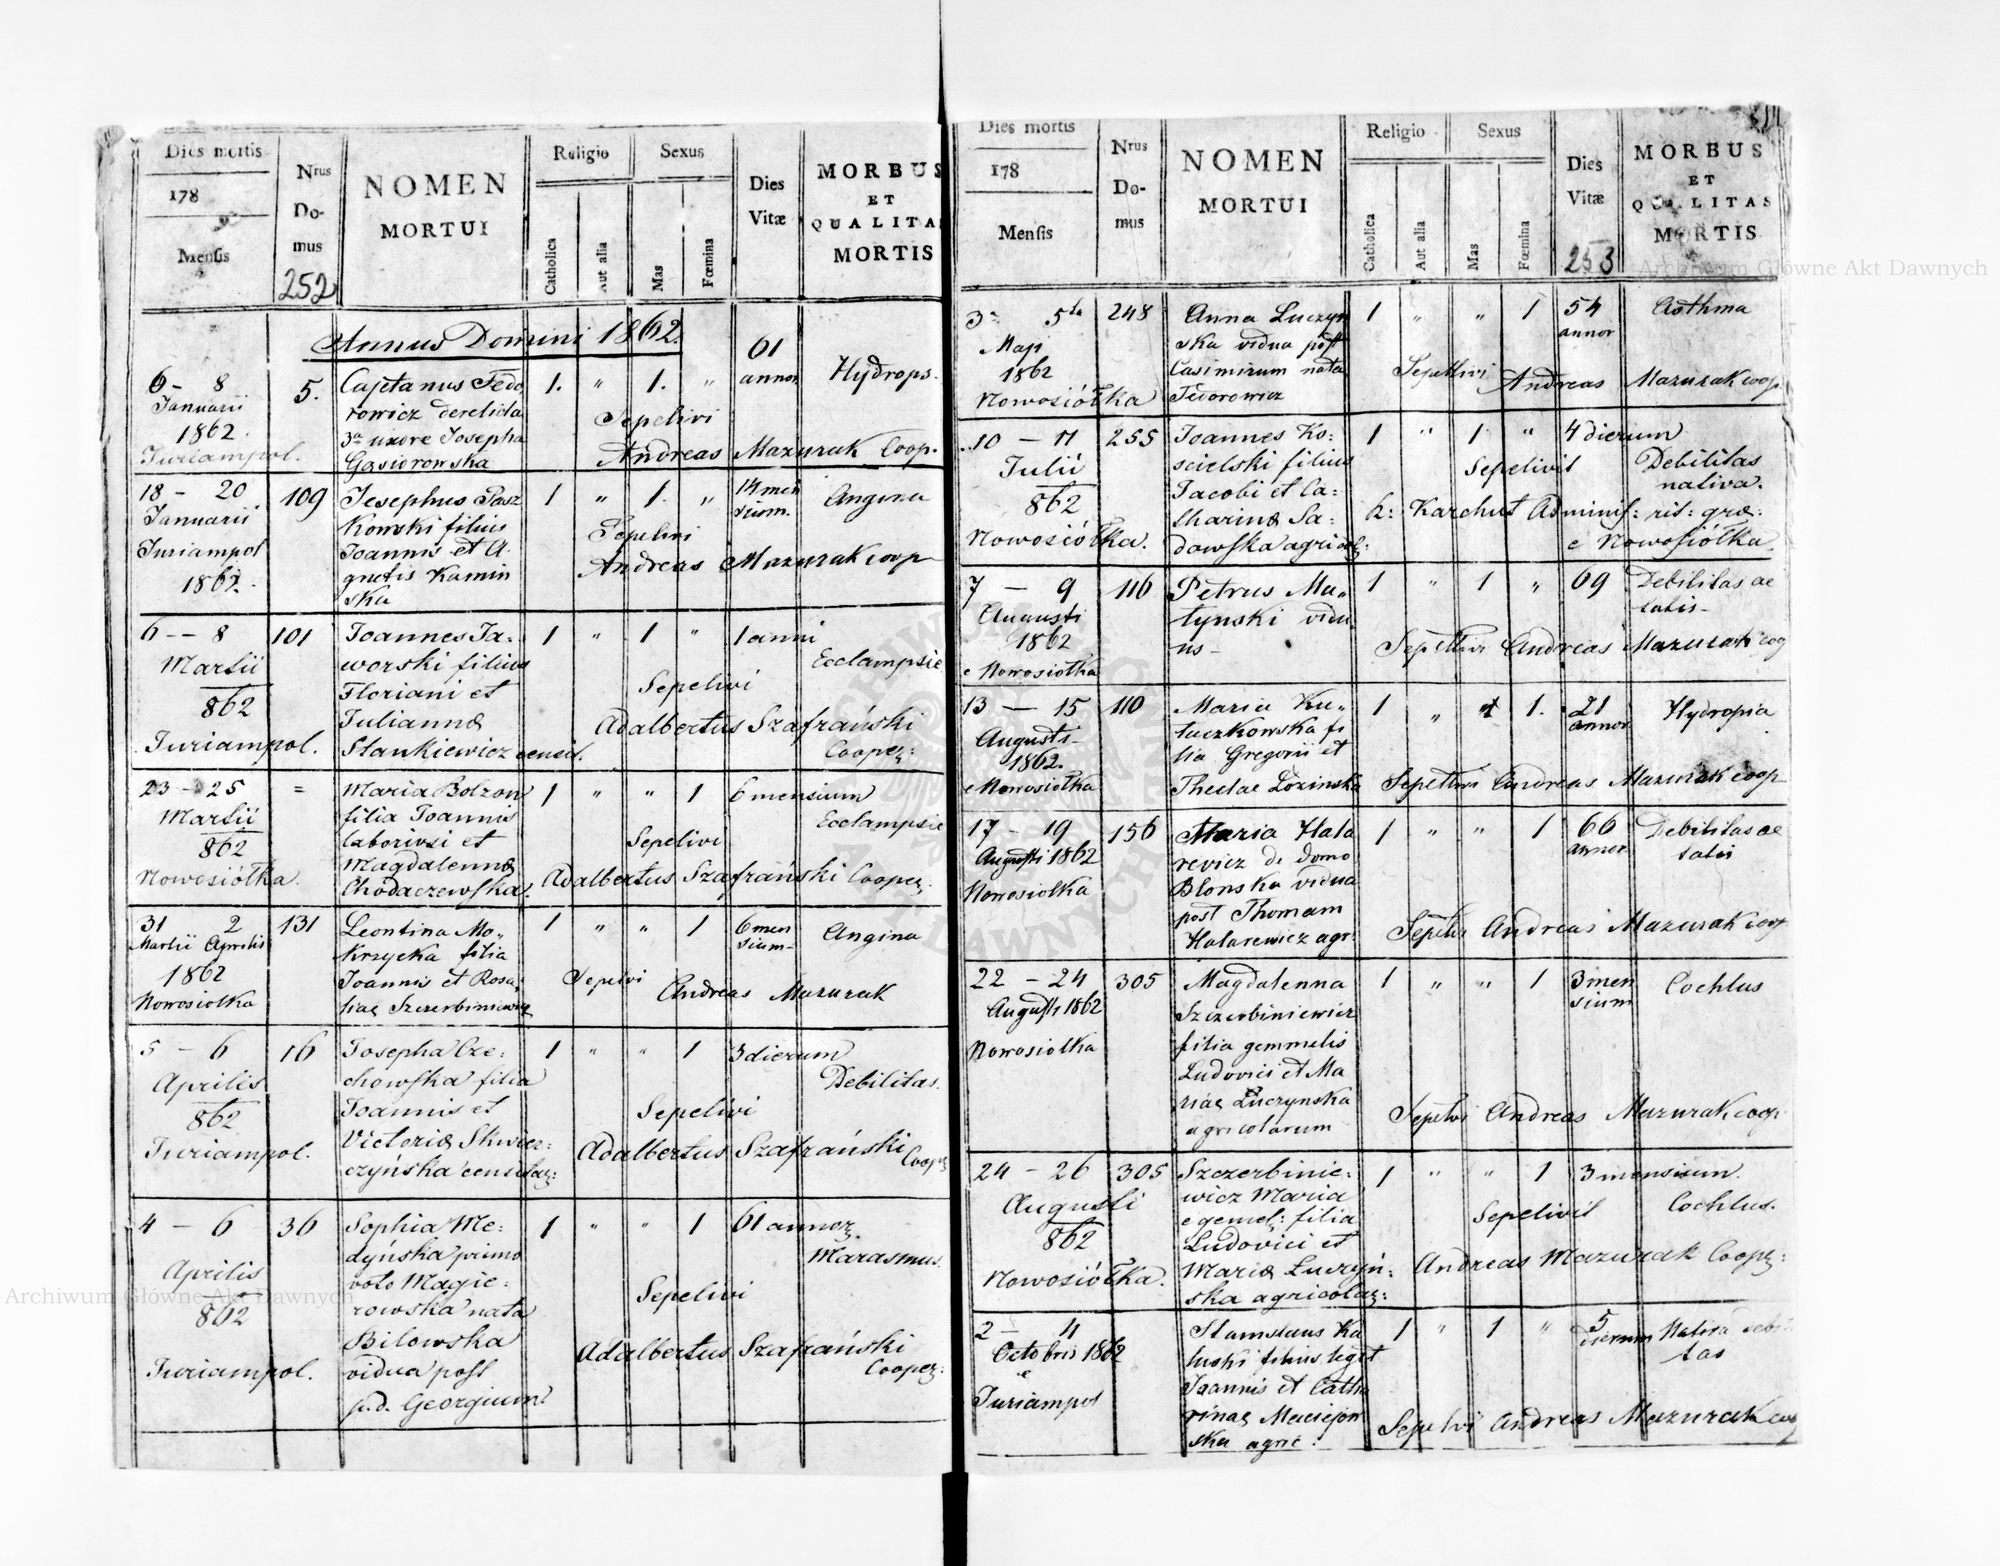 Dies mortis
178
Mensis
Nrus
Do-
mus
252
NOMEN
MORTUI
Religio
Catholica
Aut alia
Sexus
Mas
Fœmina
Dies
Vitæ
MORBUS
ET
QUALITA
MORTIS
Annus Domini 1862.
6 - 8
Januarii
1862.
Juriampol.
5.
Cajetanus Fedo
rowicz derelicta
3a uxore Josepha
Gasiorowska
1. " 1. "
61
annor
Hydrops.
Sepelivi
Andreas Mazurak Coop.
18 - 20
Januarii
Juriampol
1862.
109
Josephus Pasz
kowski filius
Joannis et A.
gnetis Kamin
ska
1 " 1. "
14 men
sium.
Angina
Sepelivi
Andreas Mazurak coop
6 - - 8
Martii
862
Juriampol.
101
Joannes Ja=
worski filius
Floriani et
Juliannæ
Stankiewicz censit.
1 " 1 "
1 anni
Ecclampsie
Sepelivi
Adalbertus Szafrański
Cooper:
23 - 25
Martii
862
Nowosiółka.
=
Maria Bolzon
filia Joannis
laboriosi et
Magdalennæ
Chodaczewska.
1 " " 1
6 mensium
Ecclampsie
Sepelivi
Adalbertus Szafrański Cooper.
31 2
Martii Aprilis
1862
Nowosiolka
131
Leontina Mo„
krzycka filia
Joannis et Rosa„
liae Szczerbiniewicz
1 " " 1
6 men
sium-
Angina
Sepelivi
Andreas Mazurak
5 - 6
Aprilis
862
Juriampol.
16
Josepha Cze=
chowska filia
Joannis et
Victoriæ Skwier=
czyńska censitar:
1 " " 1
3 dierum
Debilitas.
Sepelivi
Adalbertus Szafrański Cooper
4 - 6
Aprilis
862
Juriampol.
36
Sophia Me=
dyńska primo
voto Magie=
rowska nata
Bilowska
vidua post
p.d. Georgium
1 " " 1
61 annor.
Marasmus.
Sepelivi
Adalbertus Szafrański
Cooper:
Dies mortis
178
Mensis
Nrus
Do-
mus
NOMEN
MORTUI
Religio
Catholica
Aut alia
Sexus
Mas
Fœmina
Dies
Vitæ
253
MORBUS
ET
QUALITAS
MORTIS
3a 5ta
Maji
1862
Nowosiółka
248
Anna Luczyn
ska vidua post
Casimirum nata
Fedorowicz
1 " " 1
54
annor
Asthma
Sepelivi Andreas Mazurak coop.
10 - 11
Julii
862
Nowosiółka.
255
Joannes Ko=
scielski filius
Jacobi et Ca=
tharinæ Sa=
dowska agricol:
1 " 1 "
4 dierum
Debilitas
nativa.
Sepelivit
K: Karchut Adminis: rit: græ:
e Nowosiółka.
7 - 9
Augusti
1862
e Nowosiolka
116
Petrus Ma„
tynski vidu
us -
1 " 1 "
69
Debilitas ae
tatis -
Sepelivi Andreas Mazurak coop
13 - 15
Augusti
1862.
e Nowosiolka
110
Maria Ku„
laczkowska fi
lia Gregorii et
Theclae Lozinska
1 " 1.
21
annor
Hydropia
Sepelivi Andreas Mazurak coop
17 - 19
Augusti 1862
Nowosiolka
156
Maria Hala
rewicz de domo
Blonska vidua
post Thomam
Halarewicz agr:
1 " " 1
66
annor
Debilitas ae
tatis
Sepelivi Andreas Mazurak coop
22 - 24
Augusti 1862
Nowosiolka
305
Magdalenna
Szczerbiniewicz
filia gemmelis
Ludovici et Ma
riae Luczynska
agricolarum
1 " " 1
3 men
sium
Cochlus
Sepelivi Andreas Mazurak coop.
24 - 26
Augusti
862
Nowosiółka.
305
Szczerbinie=
wicz Maria
e gemel: filia
Ludovici et
Mariæ Luczyń=
ska agricolar:
1 " " 1
3 mensium.
Cochlus.
Sepelivit
Andreas Mazurak Cooper:
2 - 4
Octobris 1862
e
Juriampol
Stanislaus Ka
luski filius legit
Joannis et Catha
rinae Maciejow
ska agric:
1 " 1 "
5
dierum
Nativa debi
tas
Sepelivi Andreas Mazurak coop
Archiwum Główne Akt Dawnych
Archiwum Główne Akt Dawnych